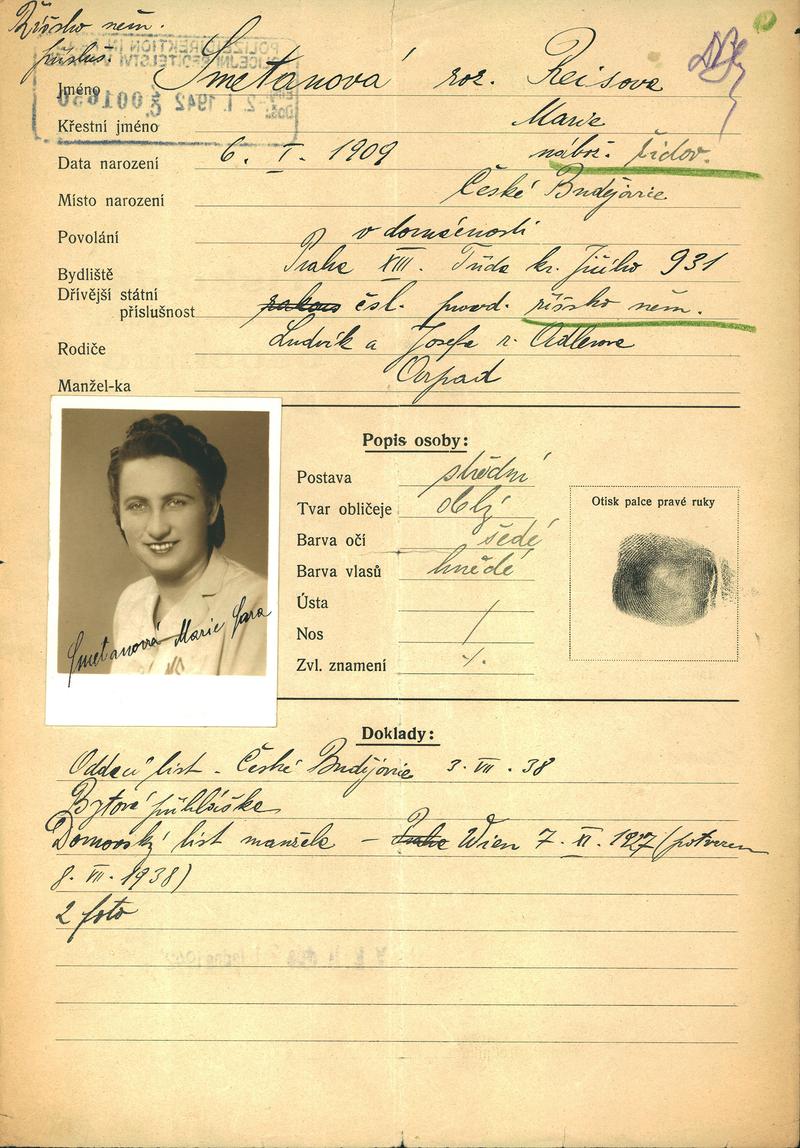 Říšsko něm.
přísluš.
POLIZEIDIREKTION IN
POLICEJNÍ ŘEDITELSTVÍ V
-2. I. 1942 č. 001650
Jméno Smetanová roz. Reisova
Křestní jméno Marie
Data narození 6. I. 1909 nábož. židov.
Místo narození České Budějovice
Povolání v domácnosti
Bydliště Praha XIII. Třída kr. Jiřího 931
Dřívější státní
příslušnost rakous čsl. provd. říšsko něm.
Rodiče Ludvík a Josefa r. Adlerova
Manžel-ka Arpad
Popis osoby:
Postava střední
Tvar obličeje oblý
Barva očí šedé
Barva vlasů hnědé
Ústa /
Nos /
Zvl. znamení ·/.
Otisk palce pravé ruky
Smetanová Marie Sara
Doklady:
Oddací list - České Budějovice 3. VII. 38
Bytová přihláška
Domovský list manžela - Praha Wien 7. XI. 1927 (potvrzen
8. VII. 1938)
2 foto